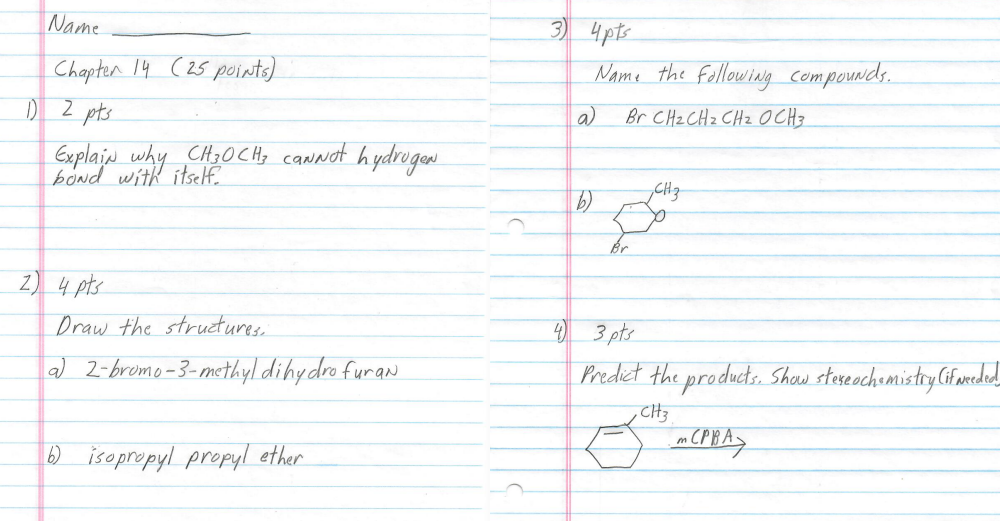 Name
Chapter 14 (25 points)
1) 2 pts
Explain why CH3OCH3 cannot hydrogen
bond with itself.
2) 4 pts
Draw the structures.
a) 2-bromo-3-methyldihydrofuran
b) isopropyl propyl ether
3) 4pts
Name the following compounds.
a) Br CH2CH2CH2OCH3
b) CH3
O
Br
4) 3 pts
Predict the products. Show stereochemistry (if needed
CH3
mCPBA